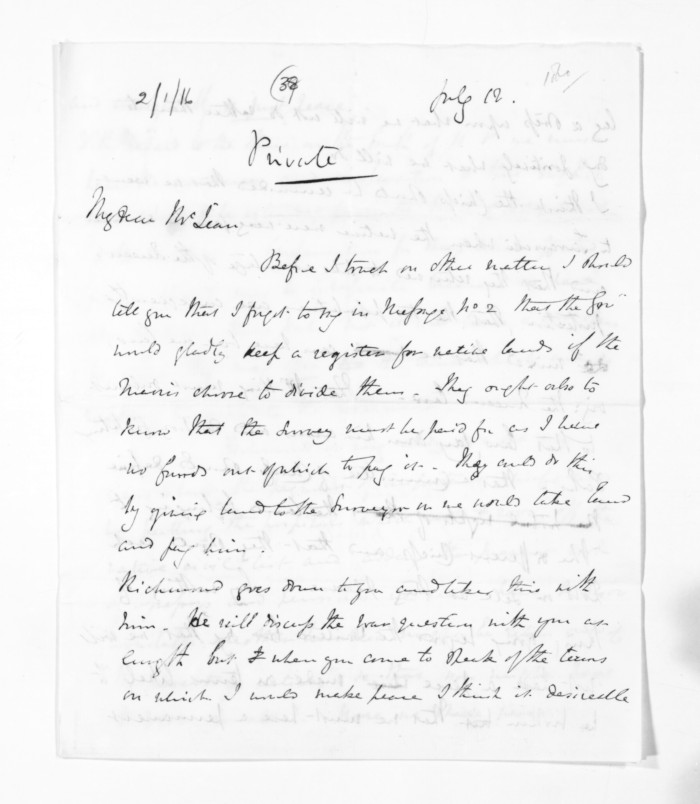 2/1/16
(38)
July 12.
Private
My dear McLean
Before I touch on other matters I should
tell you that I forgot to say in Message No 2 that the Govt
would gladly keep a register for native lands if the
Maoris choose to divide them. They ought also to
know that the Survey must be paid for as I have
no funds out of which to pay it. They could do this
by giving land to the Surveyor or we would take land
and pay him.
Richmond goes down to you and takes this with
him. He will discuss the war question with you at
length but when you come to speak of the terms
on which I would make peace I think it desirable